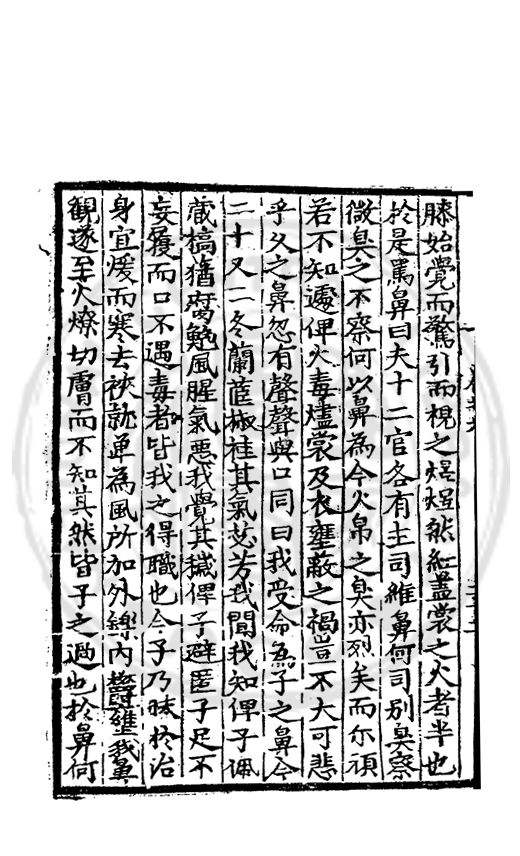 膝始覺而驚引而視之煜煜然紅盡裳之火者半也
於是罵鼻曰夫十二官各有主司維鼻何司别臭察
微臭之不察何以鼻為今火帛之臭亦烈矣而尔頑
若不知遽俾火毒燼裳及衣壅蔽之禍豈不大可悲
乎久之鼻忽有聲聲與口同曰我受命為子之鼻今
二十又二冬蘭茝椒桂其氣苾芳我聞我知俾子佩
藏槁蕕腐鮑風腥氣惡我覺其穢俾子避匿子足不
妄履而口不遇毒者皆我之得職也今子乃昧於治
身宜煖而寒去裌就單為風所加外鑠内鬱壅我鼻
觀遂至火燎切膚而不知其然皆子之過也於鼻何